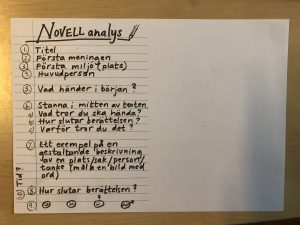 NOVELL analys
1. Titel
2. Första meningen
3. Första miljö (plats)
4. Huvudperson
5. Vad händer i början?
6. Stanna i mitten av texten.
a) Vad tror du ska hända?
b) Hur slutar berättelsen?
c) Varför tror du det?
7. Ett exempel på en
gestaltande beskrivning
(av en plats/sak/person/
tanke (måla en bild med
ord)
Tid?
8. Hur slutar berättelsen?
9.
10